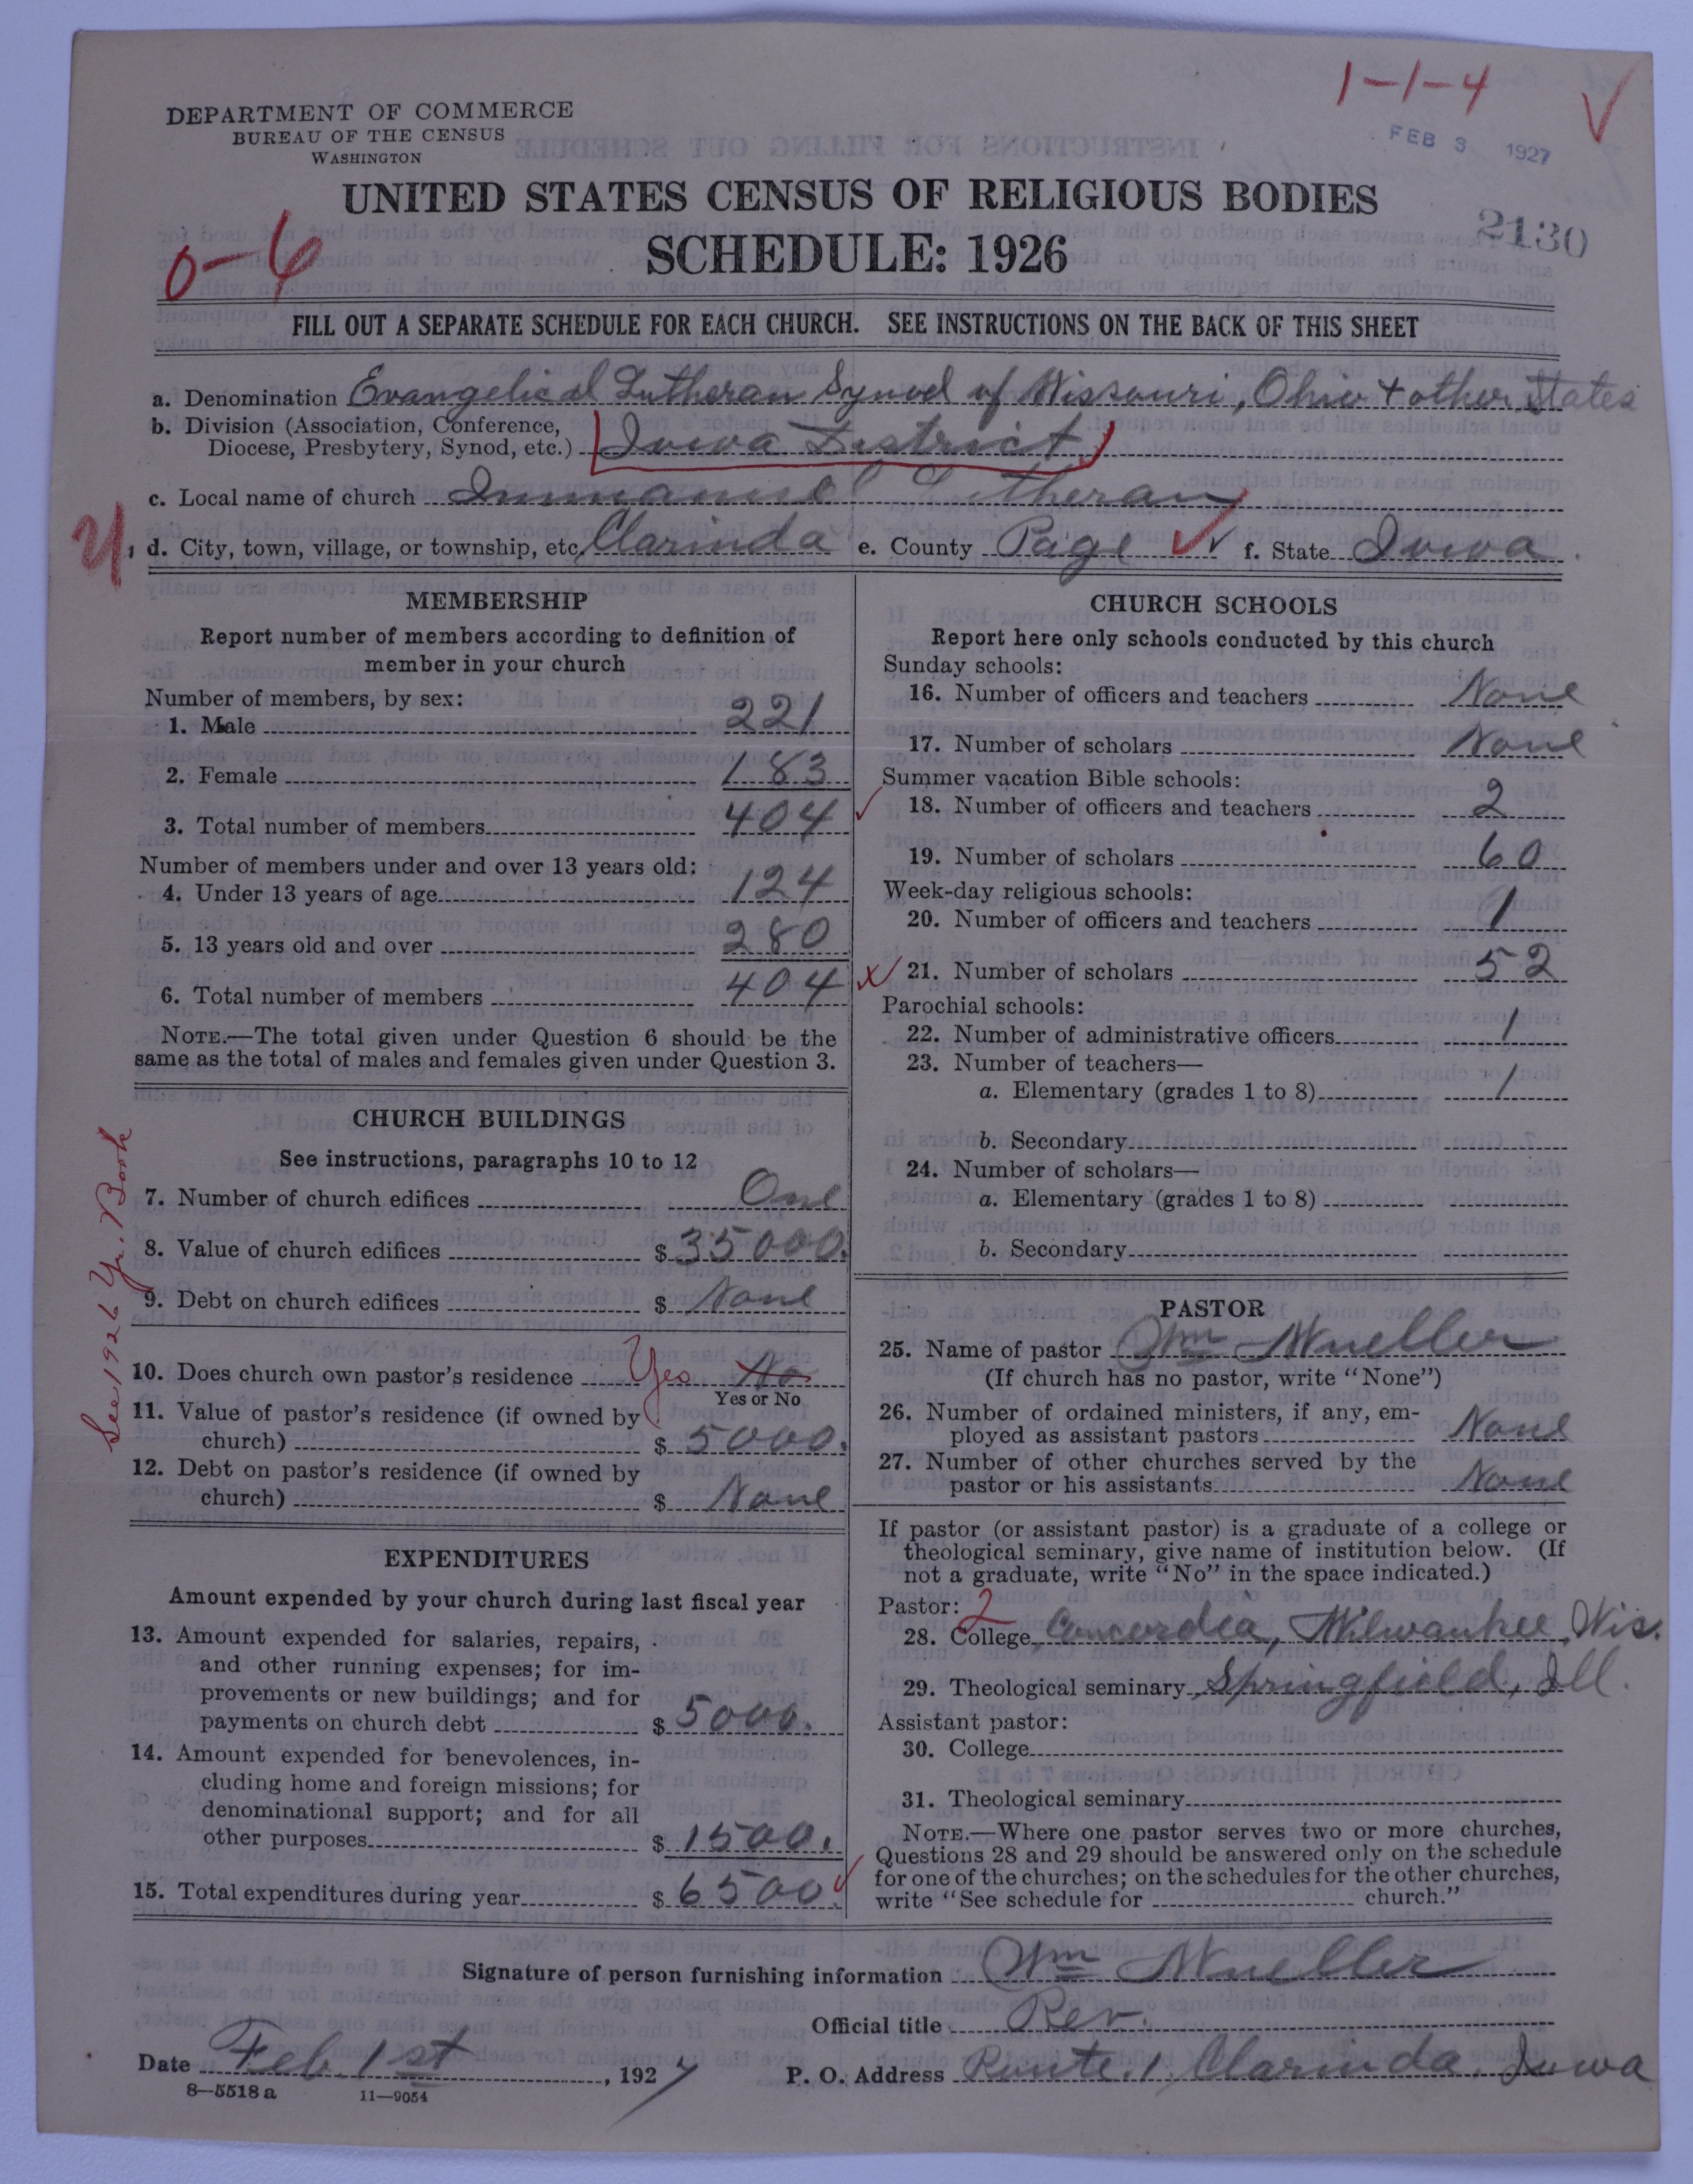 1-1-4
DEPARTMENT OF COMMERCE
BUREAU OF THE CENSUS
WASHINGTON
FEB 3 1927
UNITED STATES CENSUS OF RELIGIOUS BODIES
2130
SCHEDULE: 1926
0-6
FILL OUT A SEPARATE SCHEDULE FOR EACH CHURCH. SEE INSTRUCTIONS ON THE BACK OF THIS SHEET
a. Denomination Evangelical Lutheran Synod of Missouri, Ohio + other States
b. Division (Association, Conference,
Diocese, Presbytery, Synod, etc.) Iowa District
c. Local name of church Immanuel Lutheran
d. City, town, village, or township, etc. Clarinda e. County Page f. State Iowa
MEMBERSHIP
Report number of members according to definition of
member in your church
Number of members, by sex:
1. Male 221
2. Female 183
3. Total number of members 404
Number of members under and over 13 years old:
4. Under 13 years of age 124
5. 13 years old and over 280
6. Total number of members 404
NOTE.—The total given under Question 6 should be the
same as the total of males and females given under Question 3.
CHURCH BUILDINGS
See instructions, paragraphs 10 to 12
7. Number of church edifices One
8. Value of church edifices $ 35000.
9. Debt on church edifices $ None
10. Does church own pastor's residence Yes No
Yes or No
11. Value of pastor's residence (if owned by
church) $ 5000.
12. Debt on pastor's residence (if owned by
church) $ None
See 1926 Yr. Book
EXPENDITURES
Amount expended by your church during last fiscal year
13. Amount expended for salaries, repairs,
and other running expenses; for im-
provements or new buildings; and for
payments on church debt $ 5000.
14. Amount expended for benevolences, in-
cluding home and foreign missions; for
denominational support; and for all
other purposes $ 1500.
15. Total expenditures during year $ 6500
CHURCH SCHOOLS
Report here only schools conducted by this church
Sunday schools:
16. Number of officers and teachers None
17. Number of scholars None
Summer vacation Bible schools:
18. Number of officers and teachers 2
19. Number of scholars 60
Week-day religious schools:
20. Number of officers and teachers 1
21. Number of scholars 52
Parochial schools:
22. Number of administrative officers 1
23. Number of teachers—
a. Elementary (grades 1 to 8) 1
b. Secondary
24. Number of scholars—
a. Elementary (grades 1 to 8)
b. Secondary
PASTOR
25. Name of pastor Wm Mueller
(If church has no pastor, write "None")
26. Number of ordained ministers, if any, em-
ployed as assistant pastors None
27. Number of other churches served by the
pastor or his assistants None
If pastor (or assistant pastor) is a graduate of a college or
theological seminary, give name of institution below. (If
not a graduate, write "No" in the space indicated.)
Pastor: 2
28. College Concordia, Milwaukee, Wis.
29. Theological seminary Springfield, Ill.
Assistant pastor:
30. College
31. Theological seminary
NOTE.—Where one pastor serves two or more churches,
Questions 28 and 29 should be answered only on the schedule
for one of the churches; on the schedules for the other churches,
write "See schedule for church."
Signature of person furnishing information Wm Mueller
Official title Rev.
Date Feb. 1st, 1927 P. O. Address Route. 1, Clarinda, Iowa
8—5518 a 11—9054